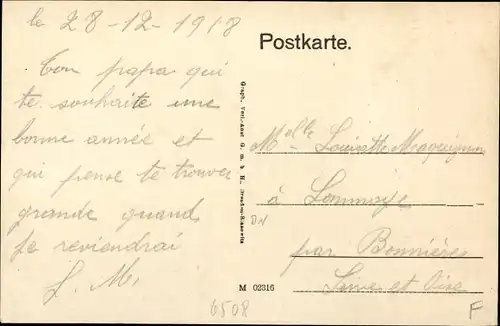 le 28-12-1918
Ton papa qui
te souhaite une
bonne année et
qui pense te trouver
grande quand
je reviendrai
J. M.
Postkarte.
Graph. Verl.-Anst. G. m. b. H.,
Melle Maquignon
à Lommoye
par Bonnières
Seine et Oise
M 02316
6508
F